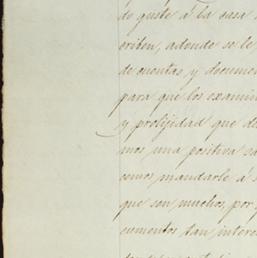 de guste á la casa
criben, adonde se le
de cuentas, y docume
para que los examin
y prolijidad que de
mos una positiva sa
comos mandarle á s
que son muchos, por
cumentos tan intere